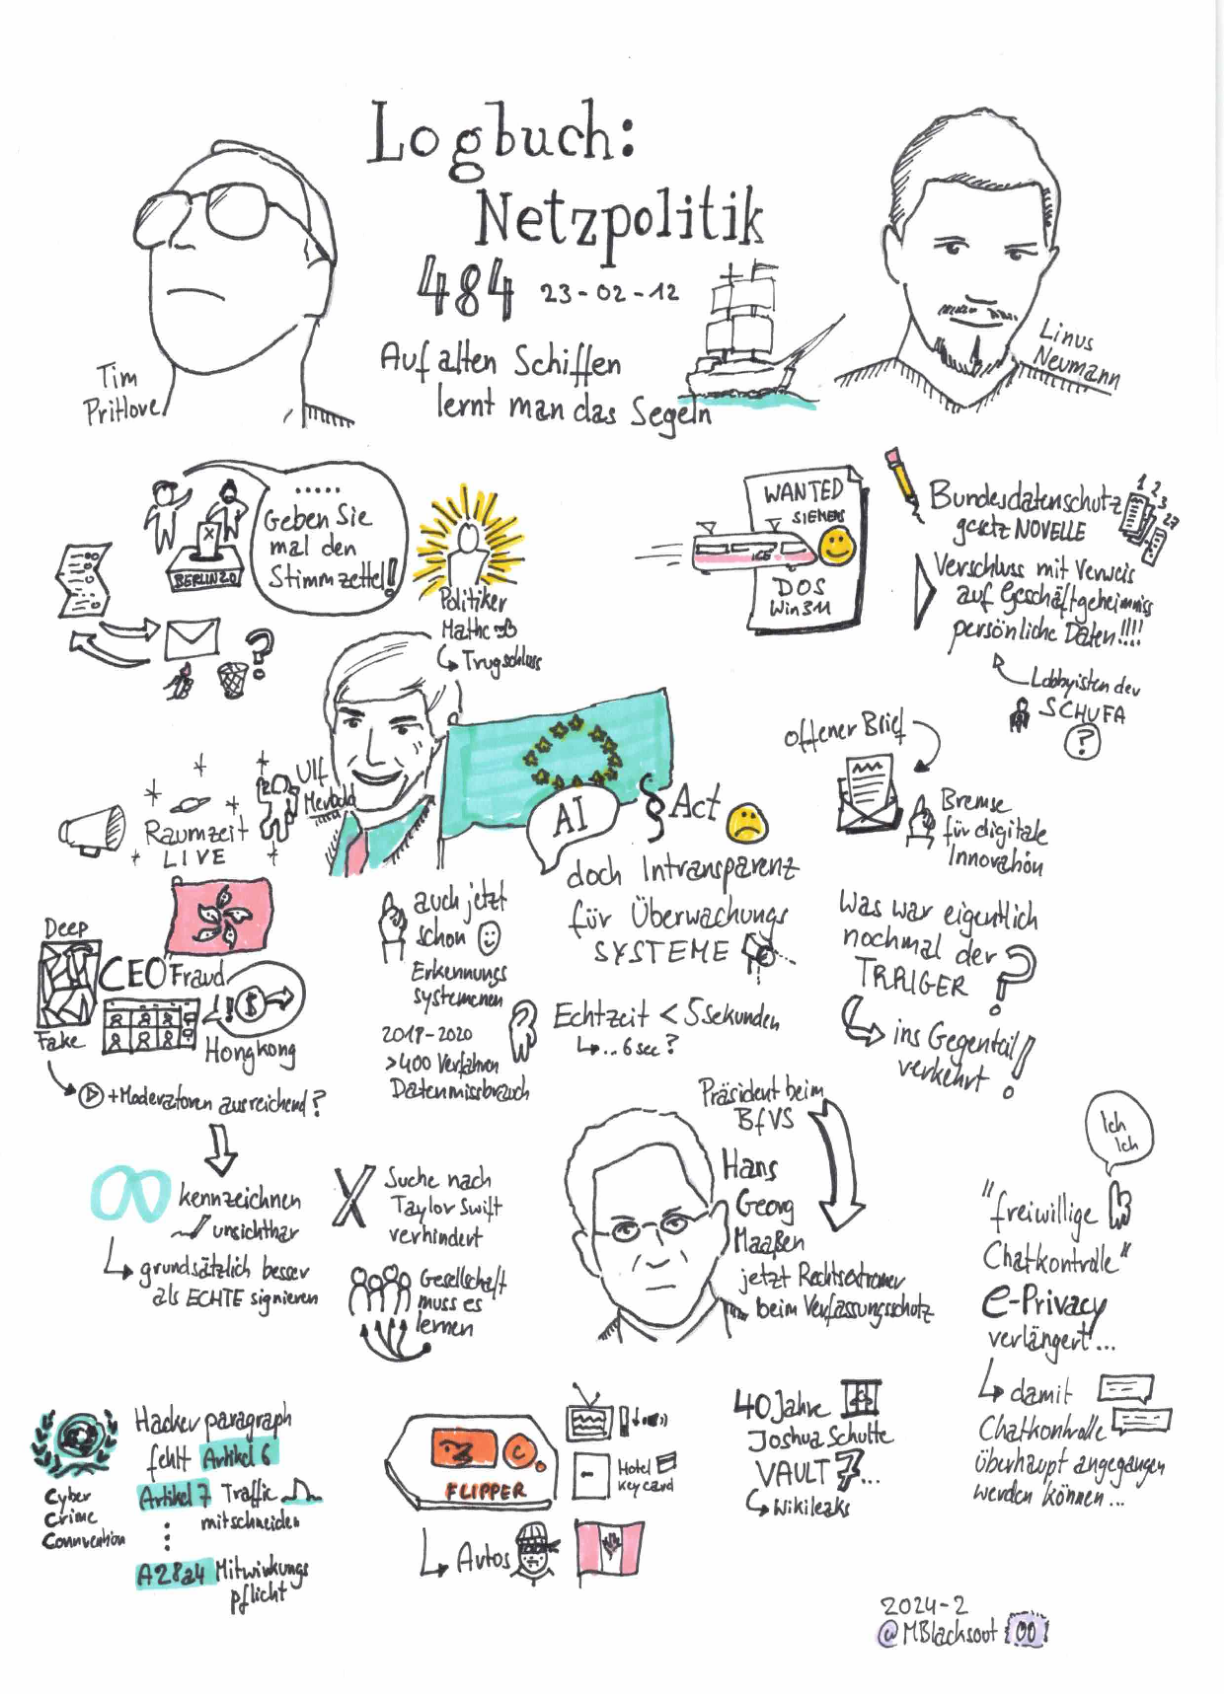 Logbuch:
Netzpolitik
484 23-02-12
Auf alten Schiffen
lernt man das Segeln
Tim
Pritlove
Linus
Neumann
.....
Geben Sie
mal den
Stimmzettel!
X
BERLIN2.0
?
Politiker
Mathe
Trugschluss
WANTED
SIEMENS
ICE
DOS
Win 3.11
Bundesdatenschutz
gesetz NOVELLE
1
2
3
27
Verschluss mit Verweis
auf Geschäftgeheimniss
persönliche Daten!!!!
Lobbyisten der
SCHUFA
?
Raumzeit
LIVE
Ulf
AI
§ Act
doch Intransparenz
für Überwachungs
SYSTEME
Echtzeit < 5 Sekunden
... 6 sec?
offener Brief
Bremse
für digitale
Innovation
Was war eigentlich
nochmal der
?
ins Gegenteil
verkehrt !
Deep
Fake
CEO Fraud
! $
Hongkong
+Moderatoren ausreichend?
auch jetzt
schon
Erkennungs
systemenen
2018-2020
>400 Verfahren
Datenmissbrauch
kennzeichnen
unsichtbar
grundsätzlich besser
als ECHTE signieren
X
Suche nach
Taylor Swift
verhindert
Gesellschaft
muss es
lernen
Präsident beim
BfVS
Hans
Georg
Maaßen
jetzt Rechtsextremer
beim Verfassungsschutz
Ich
Ich
"freiwillige
Chatkontrolle"
e-Privacy
verlängert...
damit
Chatkontrolle
überhaupt angegangen
werden können...
Cyber
Crime
Connvention
Hackerparagraph
fehlt Artikel 6
Artikel 7 Traffic
mitschneiden
A28a4 Mitwirkungs
pflicht
FLIPPER
Hotel
Key card
Autos
40 Jahre
Joshua Schulte
VAULT 7...
Wikileaks
2024-2
@MBlacksout